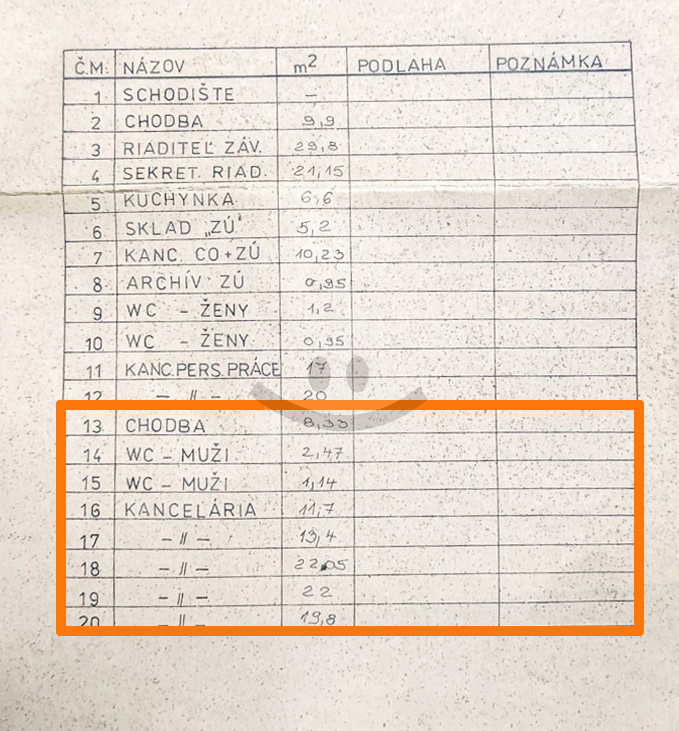 Č.M. NÁZOV m2 PODLAHA POZNÁMKA
1 SCHODIŠTE –
2 CHODBA 9,9
3 RIADITEĽ ZÁV. 29,8
4 SEKRET. RIAD. 21,15
5 KUCHYNKA 6,6
6 SKLAD „ZÚ" 5,2
7 KANC. CO+ZÚ 10,23
8 ARCHÍV ZÚ 0,95
9 WC – ŽENY 1,2
10 WC – ŽENY 0,95
11 KANC.PERS.PRÁCE 17
12 – || – 20
13 CHODBA 8,33
14 WC – MUŽI 2,47
15 WC – MUŽI 1,14
16 KANCELÁRIA 11,7
17 – || – 13,4
18 – || – 22,05
19 – || – 22
20 – || – 19,8